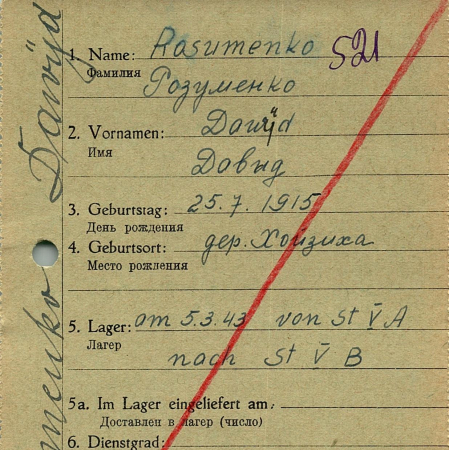 1. Name: Rasumenko 521
Фамилия Розуменко
2. Vornamen: Dawÿd
Имя Довыд
3. Geburtstag: 25.7.1915
День рождения
4. Geburtsort: дер. Хойзиха
Место рождения
5. Lager: am 5.3.43 von St V A
Лагер nach St V B
5a. Im Lager eingeliefert am:
Доставлен в лагер (число)
6. Dienstgrad:
menko Dawÿd